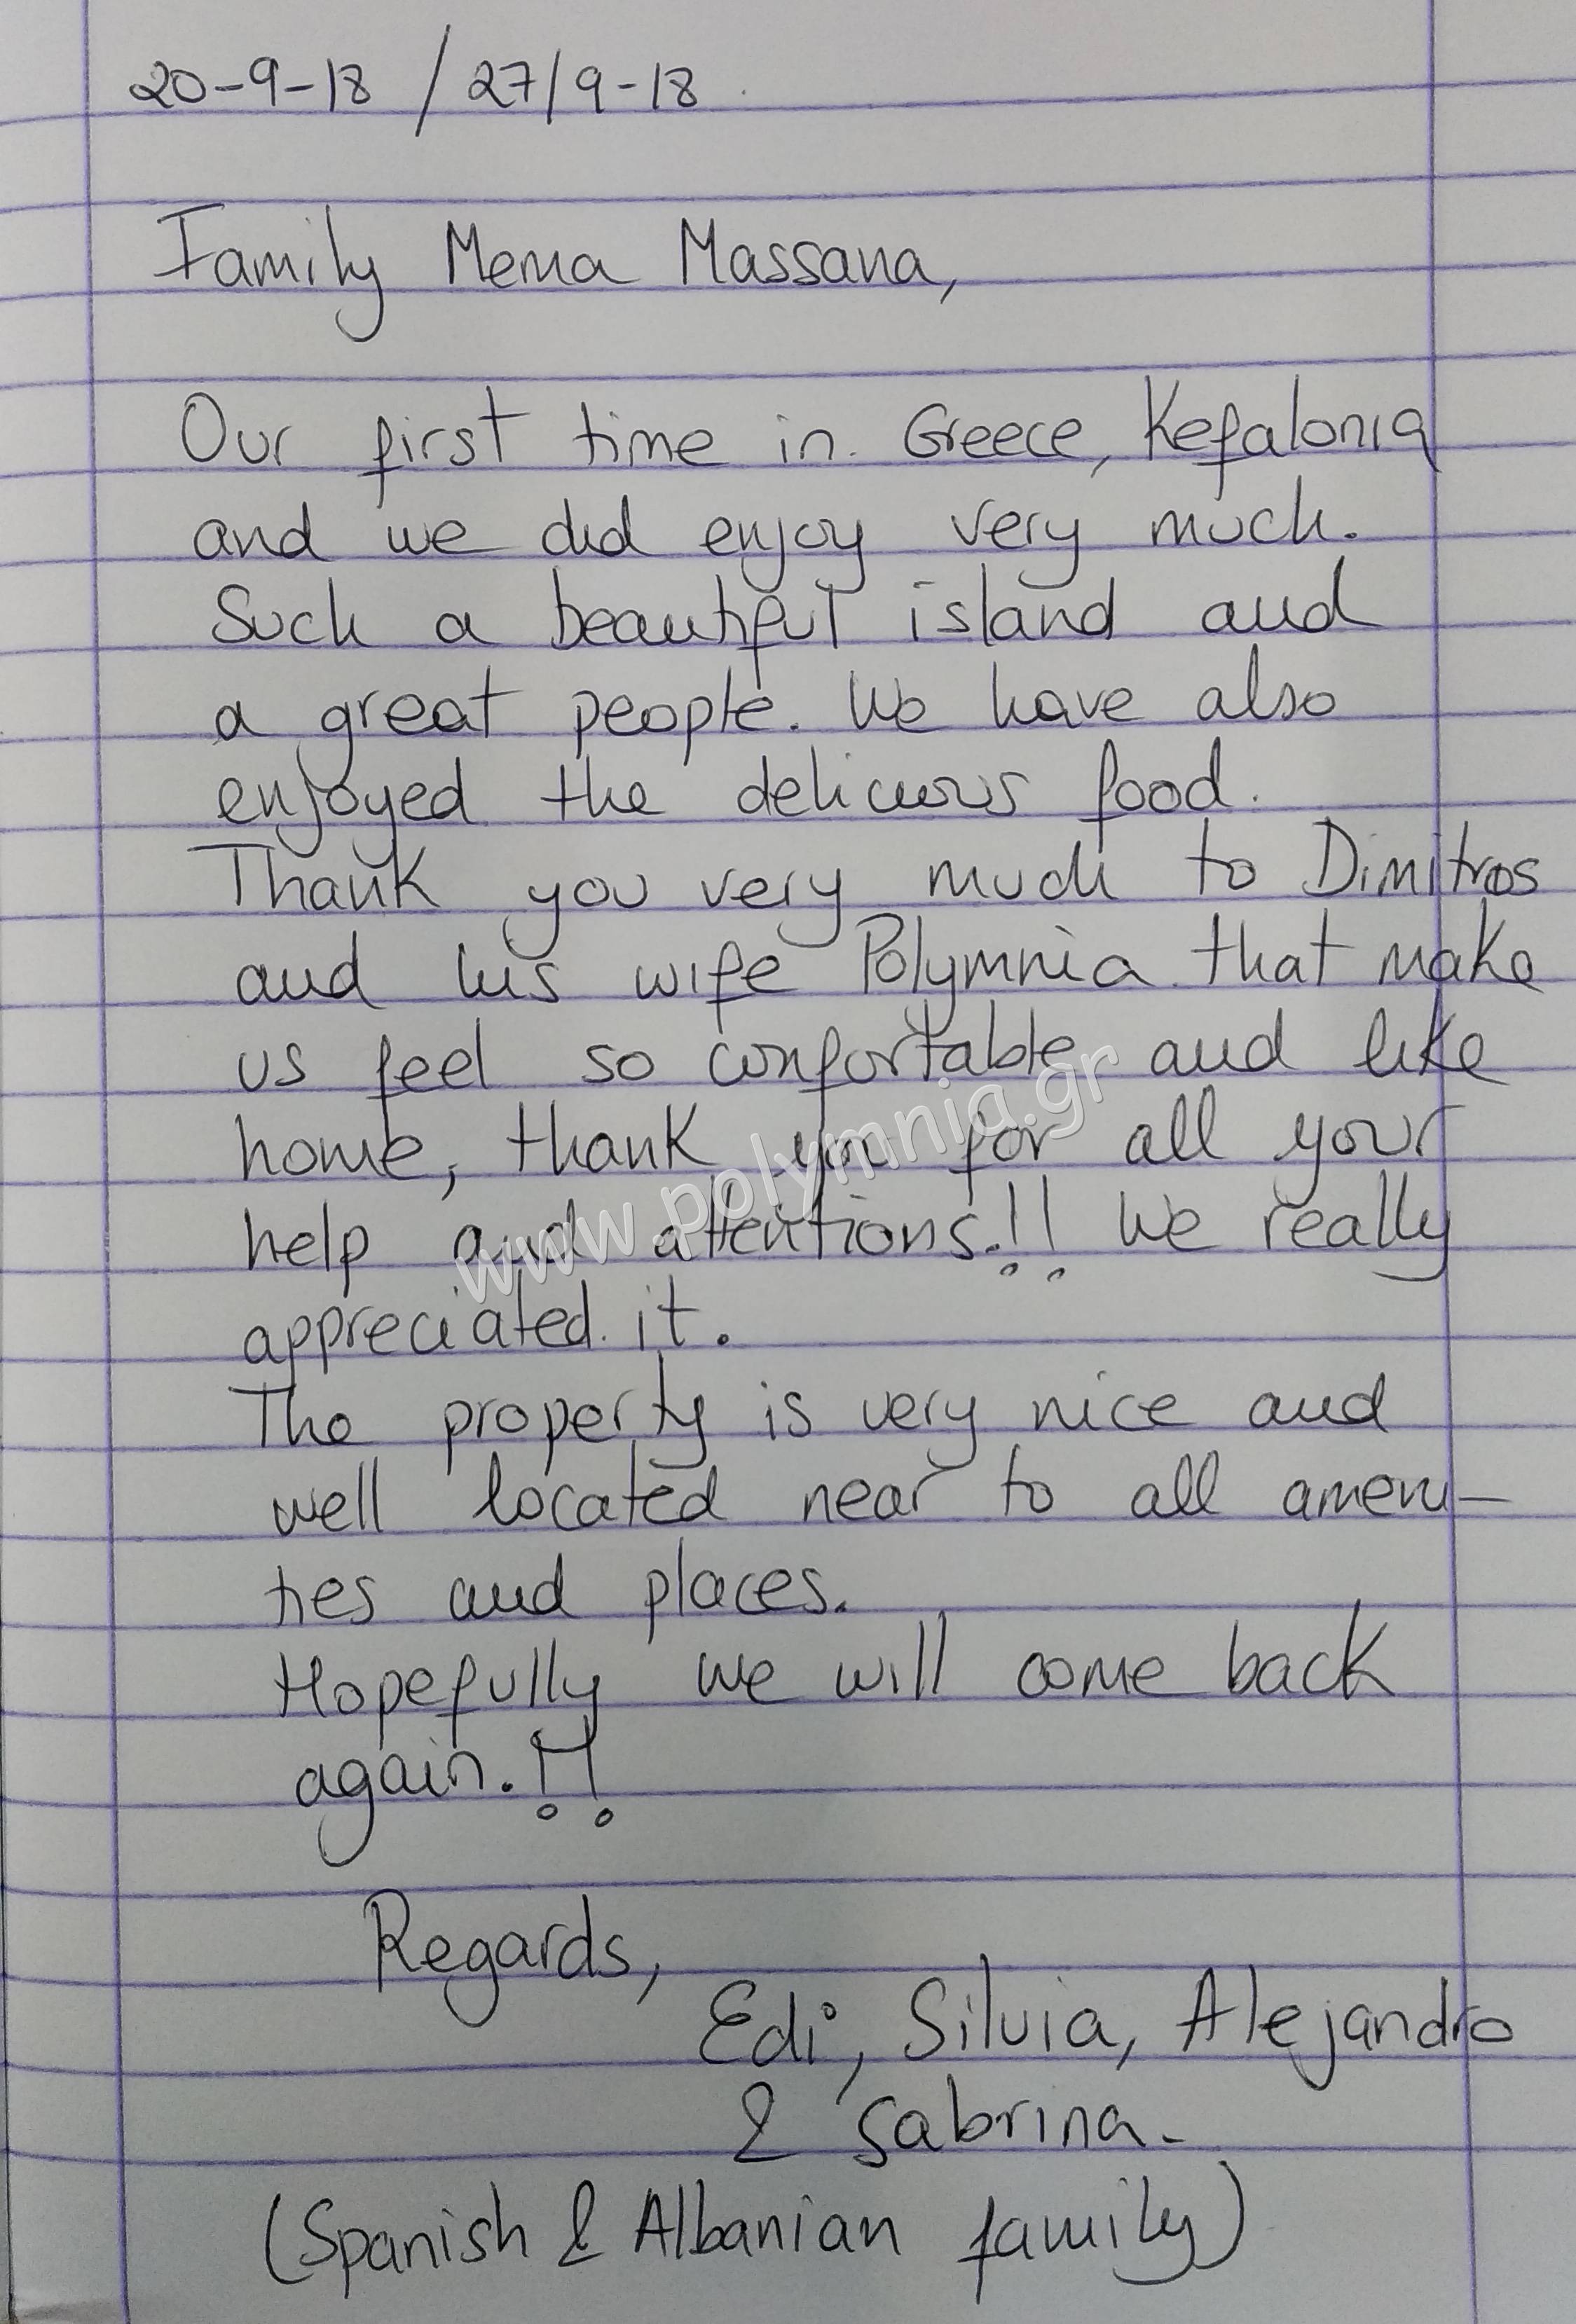 20-9-18 / 27/9-18
Family Mema Massana,
Our first time in Greece, Kefalonia
and we did enjoy very much.
Such a beautiful island and
a great people. We have also
enjoyed the delicious food.
Thank you very much to Dimitros
and his wife Polymnia that make
us feel so confortable and like
home, thank you for all your
help and attentions.!! We really
appreciated it.
The property is very nice and
well located near to all ameni-
ties and places.
Hopefully we will come back
again.!!
Regards,
Edi, Silvia, Alejandro
& Sabrina.
(Spanish & Albanian family)
www.polymnia.gr